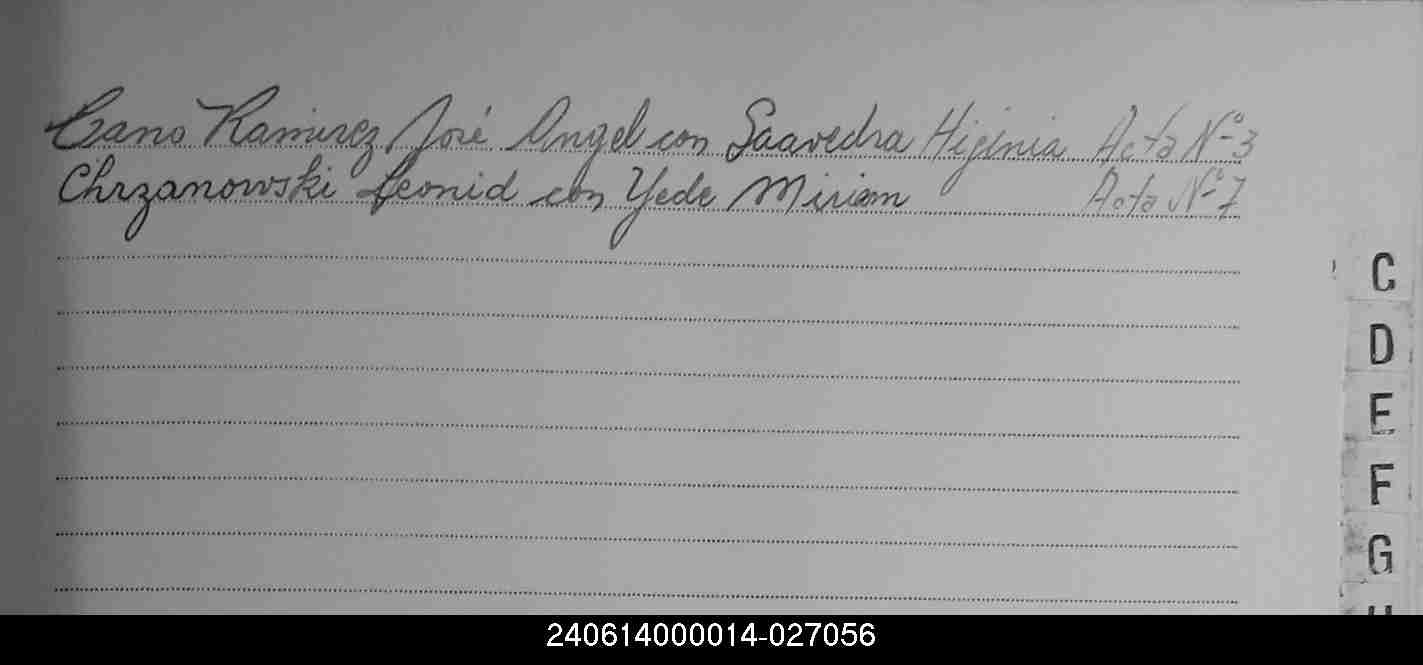 Cano Ramirez José Angel con Saavedra Higinia Acta Nº 3
Chrzanowski Leonid con Yede Miriam Acta Nº 7
C
D
E
F
G
H
240614000014-027056